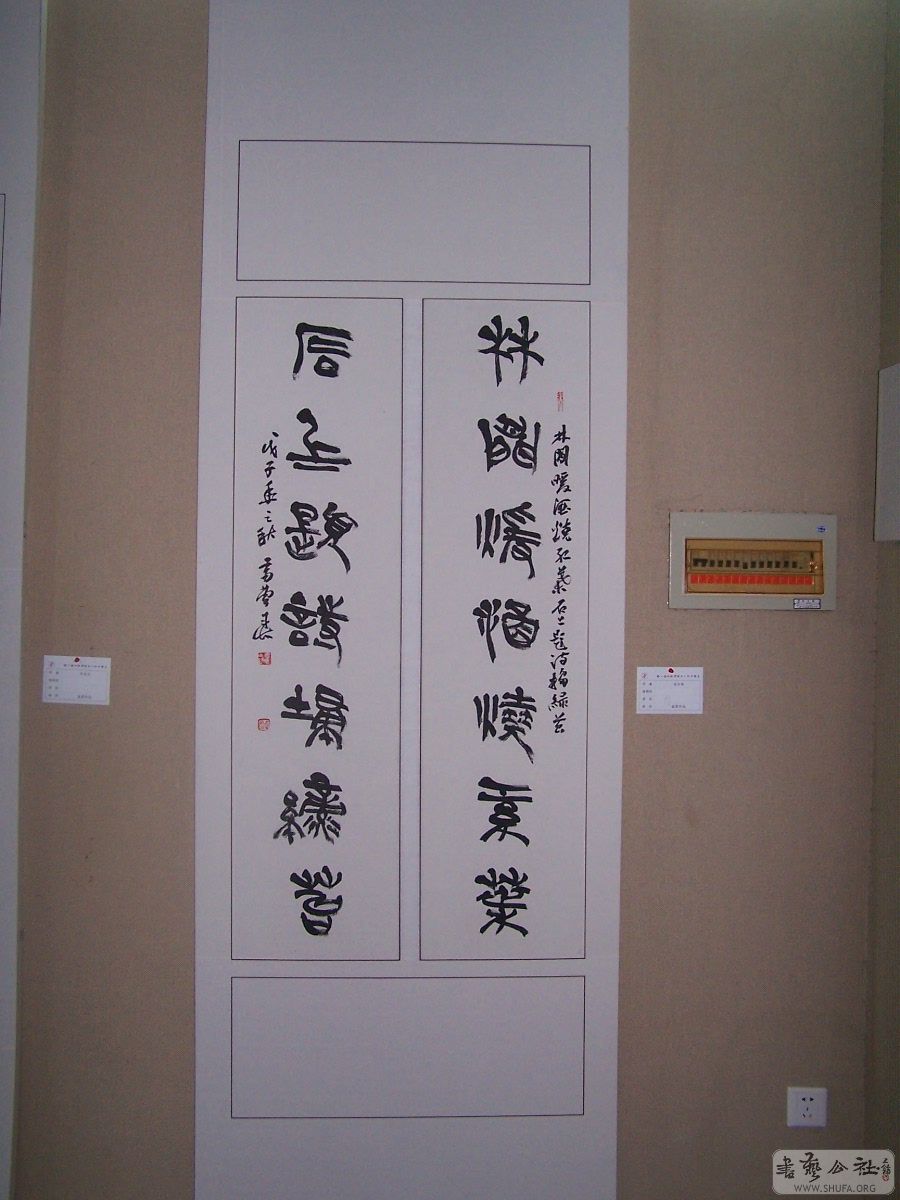 林間煖酒燒紅葉
林間暖酒燒紅葉石上題詩掃綠苔
石上題詩埽綠苔
戊子年之秋
書藝公社
WWW.SHUFA.ORG